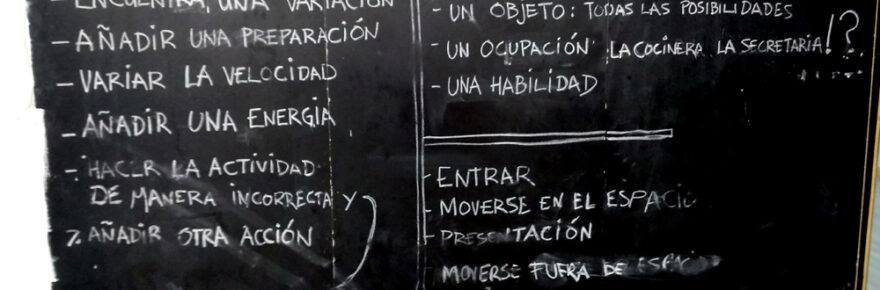 - ENCUENTRA, UNA VARIACIÓN
- AÑADIR UNA PREPARACIÓN
- VARIAR LA VELOCIDAD
- AÑADIR UNA ENERGIA
- HACER LA ACTIVIDAD
DE MANERA INCORRECTA Y
7. AÑADIR OTRA ACCIÓN
- UN OBJETO: TODAS LAS POSIBILIDADES
- UN OCUPACIÓN LA COCINERA LA SECRETARIA!?
- UNA HABILIDAD
- ENTRAR
- MOVERSE EN EL ESPACIO
- PRESENTACIÓN
MOVERSE FUERA DE ESPACIO